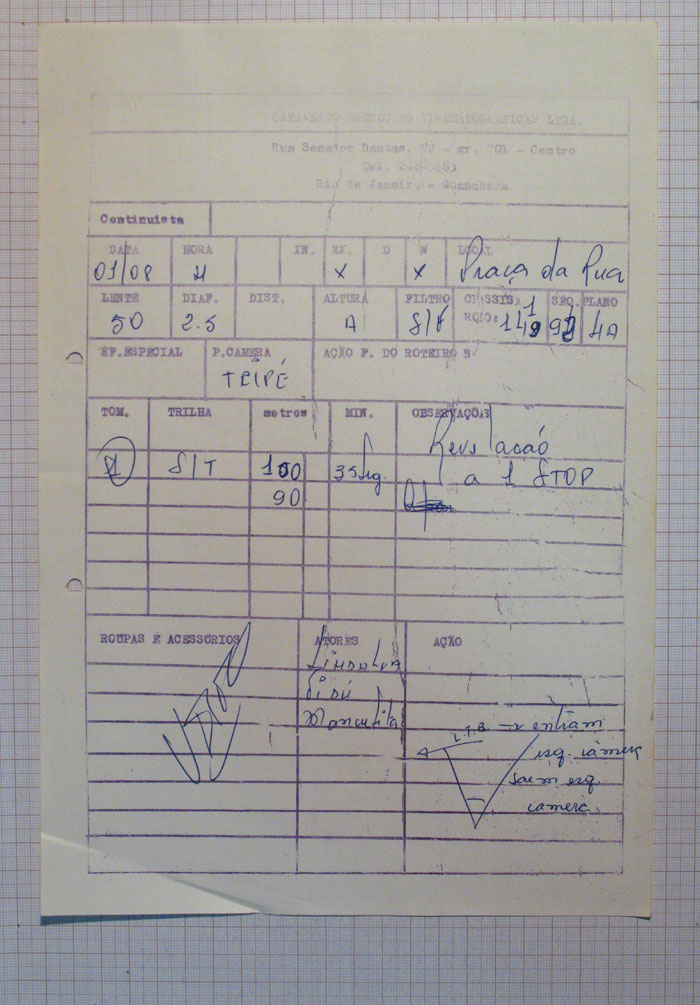 CATAVENTO PRODUÇOES CINEMATOGRAFICAS LTDA.
Rua Senador Dantas, - gr. - Centro
Tel.
Rio de Janeiro - Guanabara
Continuista
DATA HORA IN. EX. D N LOCAL
01/08 X X Praça da Rua
LENTE DIAF. DIST. ALTURA FILTRO CHASSIS: 1 SEQ. PLANO
50 2.5 A S/F ROLO: 4A
EF.ESPECIAL P.CAMERA AÇÃO F. DO ROTEIRO N
TRIPÉ
TOM. TRILHA metros MIN. OBSERVAÇÕAS
1 S/T 100 35seg. a 1 STOP
90
ROUPAS E ACESSORIOS ATORES AÇÃO
entram
A esq. câmera
saem esq.
camera